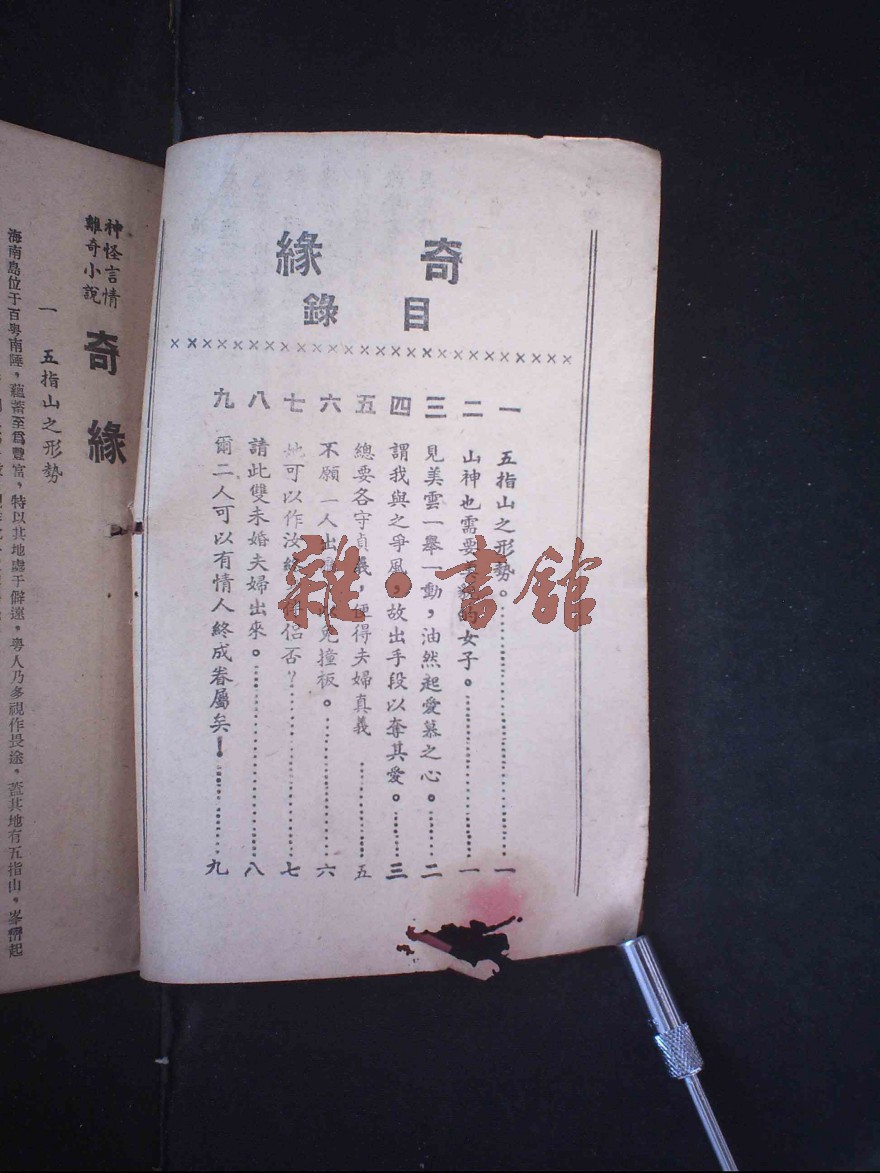 奇緣
目錄
一 五指山之形勢。 一
二 山神也需要 的女子。 一
三 見美雲一舉一動，油然起愛慕之心。 二
四 謂我與之爭風，故出手段以奪其愛。 三
五 總要各守貞義，便得夫婦真義 五
六 不願一人出 免撞板。 六
七 她可以作汝 侶否？ 七
八 請此雙未婚夫婦出來。 八
九 爾二人可以有情人終成眷屬矣！ 九
雜·書館
神怪言情
離奇小說
奇緣
一 五指山之形勢
海南島位于百粵南陲，蘊蓄至爲豐富，特以其地處于僻遠，粵人乃多視作畏途，蓋其地有五指山，峯巒起